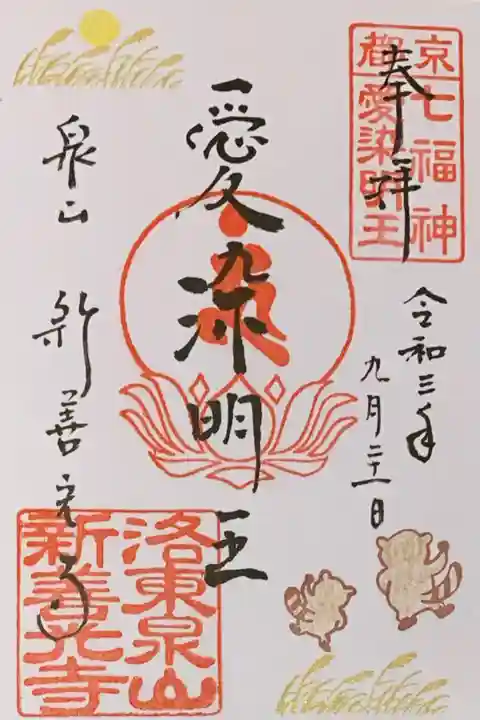 奉拝
京都七福神
愛染明王
令和三年
九月二十一日
愛染明王
泉山 新善光寺
洛東泉山
新善光寺